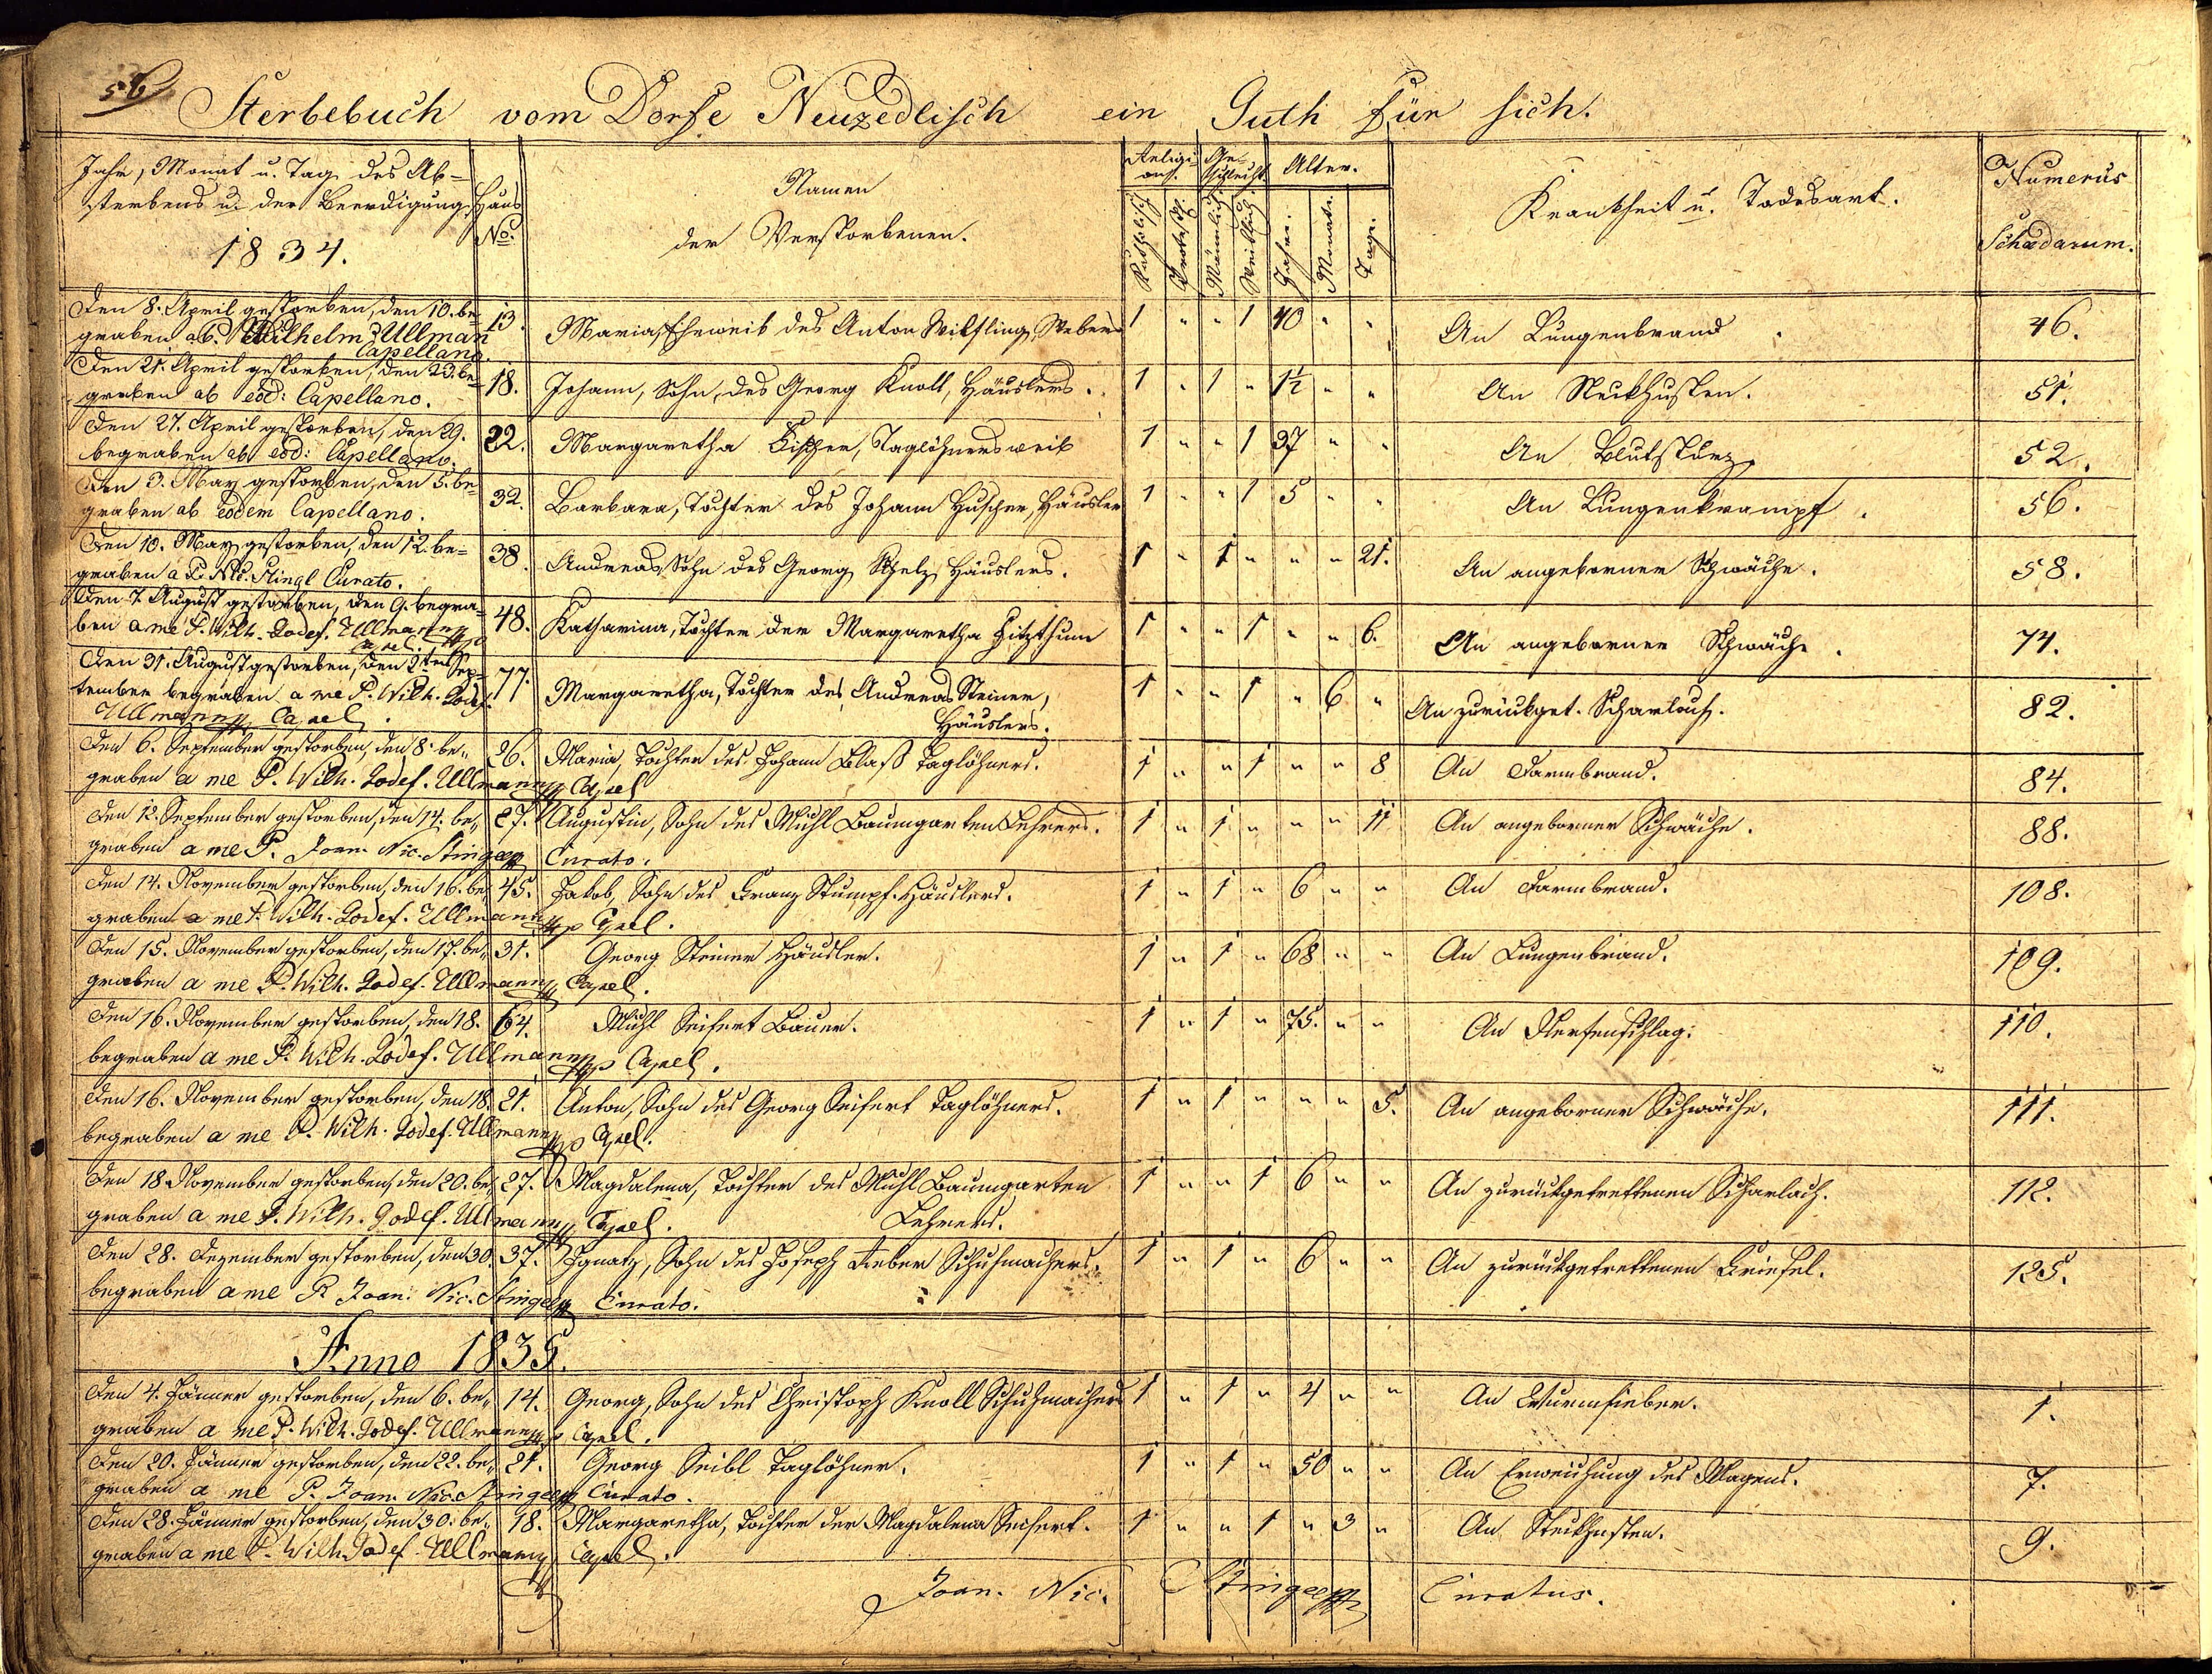 56
Sterbebuch vom Dorfe Neuzedlisch ein Guth für sich.
Jahr, Monat u. Tag des Ab-
sterbens u. der Beerdigung
1834.
Haus
No.
Namen
der Verstorbenen.
Religi-
on.
Ge-
schlecht
Alter.
Katholisch
Protest.
Männlich
Weiblich
Jahre.
Monate.
Tage.
Krankheit u. Todesart.
Numerus
Schedarum.
Den 8. April gestorben, den 10. be-
graben ab P. Wilhelm Ullman
Capellano.
13. Maria, Eheweib des Anton Wilfling, Webers 1 " " 1 40 " " An Lungenbrand 46.
Den 21. April gestorben, den 23. be-
graben ab eod: Capellano.
18. Johann, Sohn, des Georg Knoll, Häuslers. 1 " 1 " 1½ " " An Steckhusten. 51.
Den 27. April gestorben, den 29.
begraben ab eod: Capellano.
22. Margaretha Fischer, Taglöhnersweib 1 " " 1 37 " " An Blutsturz 52.
Den 3. May gestorben, den 5. be-
graben ab eodem Capellano.
32. Barbara, Tochter des Johann Huscher, Häusler 1 " " 1 5 " " An Lungenkrampf. 56.
Den 10. May gestorben, den 12. be-
graben a P. Nic. Stingl Curato.
38. Andreas, Sohn des Georg Häuslers. 1 " 1 " " " 21. An angeborner Schwäche. 58.
Den 7. August gestorben, den 9. begra-
ben a me P. Wilh. Godef. Ullmann
Capel. mp
48. Katharina, Tochter der Margaretha Fitzthum 1 " " 1 " " 6. An angeborner Schwäche. 74.
Den 31. August gestorben, den 2ten Sep-
tember begraben a me P. Wilh. Godef.
Ullmann Capel.
77. Margaretha, Tochter des Andreas Steiner,
Häuslers. 1 " " 1 " 6 " An zurückget. Scharlach. 82.
Den 6. September gestorben, den 8. be-
graben a me P. Wilh. Godef. Ullmann Capel
26. Maria, Tochter des Johann Blaß Taglöhners. 1 " " 1 " " 8 An Darmbrand. 84.
Den 12. September gestorben, den 14. be-
graben a me P. Joan. Nic. Stingl Curato.
27. Augustin, Sohn des Michl Baumgarten Lehrers. 1 " 1 " " " 11 An angeborner Schwäche. 88.
Den 14. November gestorben, den 16. be-
graben a me P. Wilh. Godef. Ullmann mp Capel.
45. Jakob, Sohn des Franz Stumpf Häuslers. 1 " 1 " 6 " " An Darmbrand. 108.
Den 15. November gestorben, den 17. be-
graben a me P. Wilh. Godef. Ullmann Capel.
31. Georg Steiner Häusler. 1 " 1 " 68 " " An Lungenbrand. 109.
Den 16. November gestorben, den 18.
begraben a me P. Wilh. Godef. Ullmann mp Capel.
64. Michl Seifert Bauer. 1 " 1 " 75. " " An Nervenschlag. 110.
Den 16. November gestorben, den 18.
begraben a me P. Wilh. Godef. Ullmann mp Capel.
21. Anton, Sohn des Georg Seifert Taglöhners. 1 " 1 " " " 5. An angeborner Schwäche. 111.
Den 18 November gestorben, den 20. be-
graben a me P. Wilh. Godef. Ullmann Capel.
27. Magdalena, Tochter des Michl Baumgarten
Lehrers. 1 " " 1 6 " " An zurückgetrettenen Scharlach. 112.
Den 28. Dezember gestorben, den 30.
begraben a me P. Joan. Nic. Stingl Curato.
37. Ignatz, Sohn des Joseph Lieber Schuhmachers. 1 " 1 " 6 " " An zurückgetrettenen Friesel. 125.
Anno 1835.
Den 4. Jänner gestorben, den 6. be-
graben a me P. Wilh. Godef. Ullmann Capel.
14. Georg, Sohn des Christoph Knoll Schuhmachers 1 " 1 " 4 " " An Wurmfieber. 1.
Den 20. Jänner gestorben, den 22. be-
graben a me P. Joan. Nic. Stingl Curato.
21. Georg Seibl Taglöhner. 1 " 1 " 50 " " An Erweichung des Magens. 7.
Den 28. Jänner gestorben, den 30. be-
graben a me P. Wilh. Godef. Ullmann Capel.
18. Margaretha, Tochter der Magdalena Seifert. 1 " " 1 " 3 " An Steckhusten. 9.
Joan. Nic. Stingl mp Curatus.